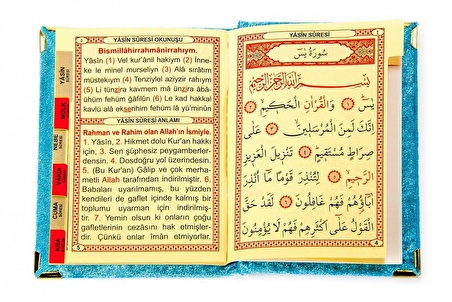 YÂSÎN SÛRESİ
سُورَةُ يٰسٓ
بِسْمِ اللّٰهِ الرَّحْمٰنِ الرَّحِيمِ
يٰسٓ ﴿١﴾ وَالْقُرْاٰنِ الْحَكِيمِ ﴿٢﴾
اِنَّكَ لَمِنَ الْمُرْسَلِينَ ﴿٣﴾ عَلٰى
صِرَاطٍ مُسْتَقِيمٍ ﴿٤﴾ تَنْزِيلَ الْعَزِيزِ
الرَّحِيمِ ﴿٥﴾ لِتُنْذِرَ قَوْمًا مَٓا اُنْذِرَ
اٰبَٓاؤُ۬هُمْ فَهُمْ غَافِلُونَ ﴿٦﴾ لَقَدْ حَقَّ
الْقَوْلُ عَلٰٓى اَكْثَرِهِمْ فَهُمْ لَا يُؤْمِنُونَ
4
YÂSÎN SÛRESİ OKUNUŞU
Bismillâhirrahmânirrahıym.
Yâsîn (1) Vel kur'ânil hakiym (2) İnne-
ke le minel murseliyn (3) Alâ sırâtım
müstekıym (4) Tenziylel aziyzir rahıym
(5) Li tünzira kavmem mâ ünzira âbâ-
ühüm fehüm ğâfilûn (6) Le kad hakkal
kavlü alâ ekserihim fehüm lâ yü'minûn
YÂSÎN SÛRESİ ANLAMI
Rahman ve Rahim olan Allah'ın İsmiyle.
1. Yâsîn, 2. Hikmet dolu Kur'an hakkı
için, 3. Sen şüphesiz peygamberler-
densin. 4. Dosdoğru yol üzerindesin.
5. (Bu Kur'an) Gâlip ve çok merha-
metli Allah tarafından indirilmiştir. 6.
Babaları uyarılmamış, bu yüzden
kendileri de gaflet içinde kalmış bir
toplumu uyarman için indirilmiş-
tir. 7. Yemin olsun ki onların çoğu
gafletlerinin cezasını hak etmişler-
dir. Çünkü onlar îman etmiyorlar.
5
YÂSİN
SÛRESİ
MÜLK
NEBE
SÛRESİ
VAKIA
CUMA
SÛRESİ
KISA